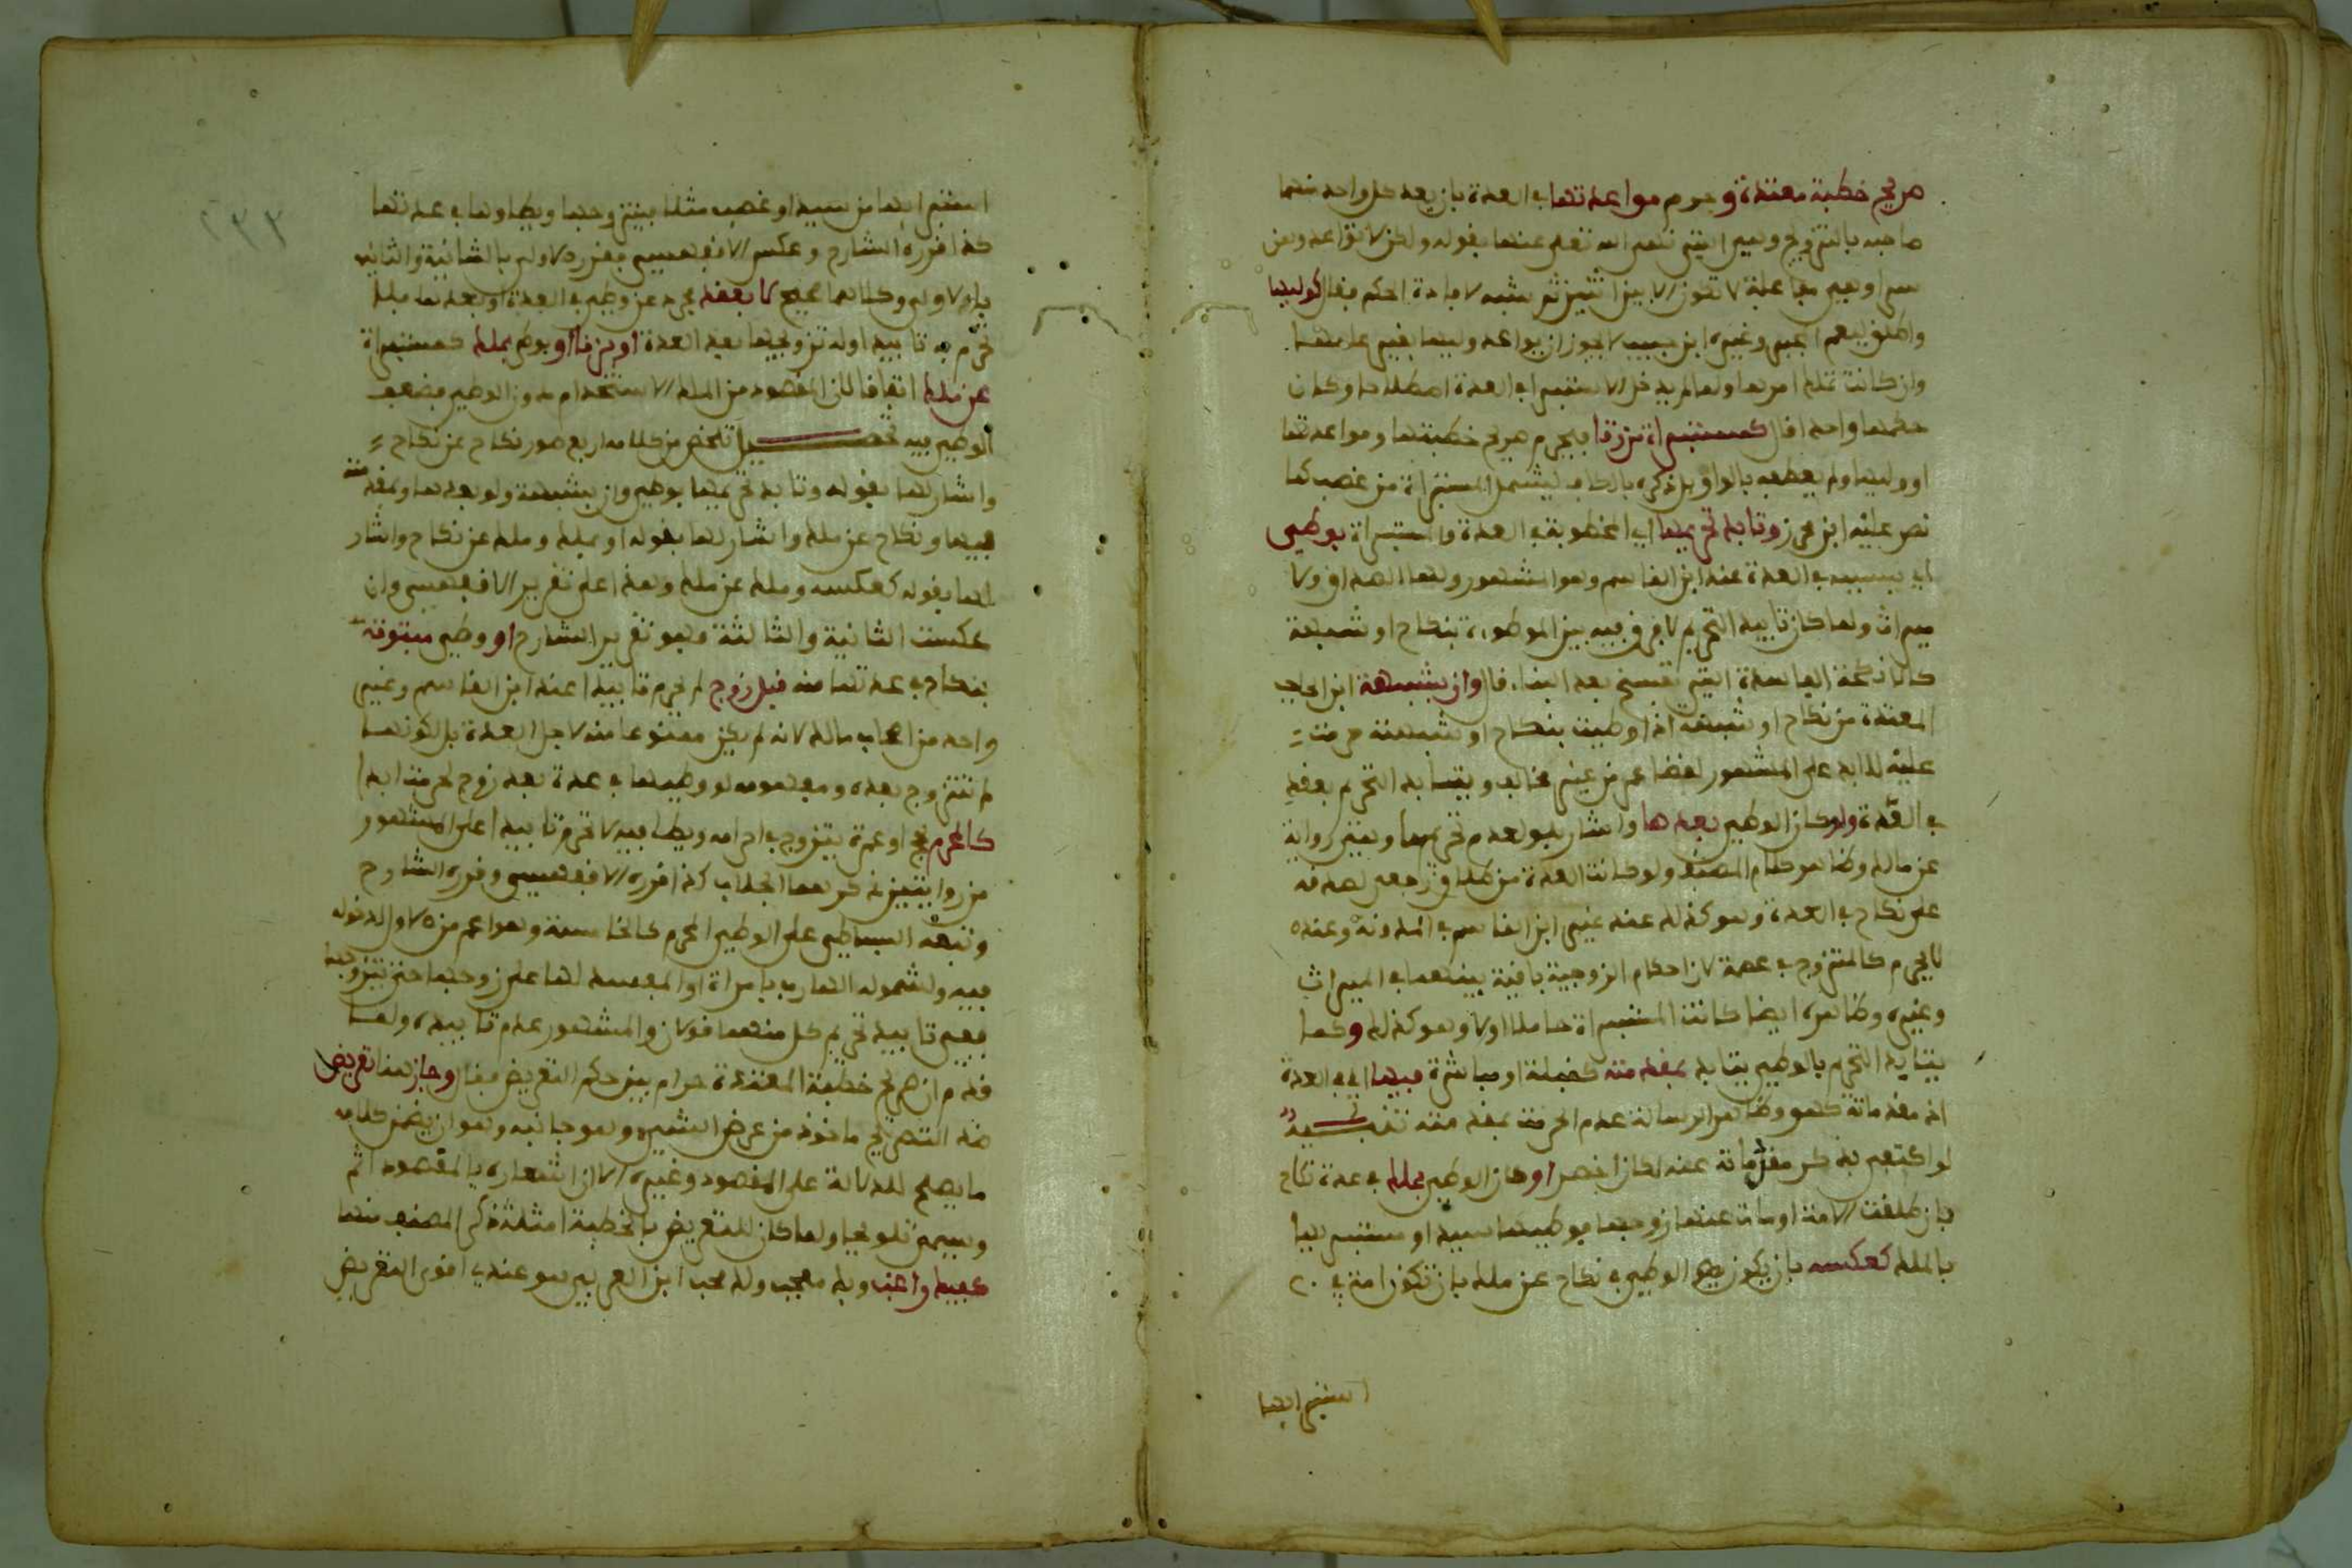 صريح خطبة معتدة وحرم مواعدتها في العدة بان يعد كل واحد منهما
صاحبه بالتزويج وهي التي نهى الله تعلى عنها بقوله ولكن لا تواعدوهن
سرا وهي مفاعلة لا تكون الا بين اثنين ثم شبه لافادة الحكم فقال كوليها
واطلق ليعم المجبر وغيره ابن حبيب لا يجوز ان يواعد وليها بغير علمها
وان كانت تملك امرها ولما لم يدخل الاستبراء في العدة اصطلاحا وكان
حكمها واحدا قال كمستبراة من زنا فيحرم صريح خطبتها ومواعدتها
او وليها ولم يعطفه بالواو بل ذكره بالكاف ليشمل المستبراة من غصب كما
نص عليه ابن محرز وتابد تحريمها اي المخطوبة في العدة والمستبراة بوطئ
اي بسببه في العدة عند ابن القاسم وهو المشهور ولها الصداق ولا
ميراث ولما كان تابيد التحريم لا فرق فيه بين الموطوءة بنكاح او شبهة
كالانكحة الفاسدة التي تفسخ بعد البناء قال وان بشبهة ابن الحاجب
المعتدة من نكاح او شبهة اذا وطيت بنكاح او شبهته حرمت
عليه للابد على المشهور لقضاء عمر من غير مخالف ويتابد التحريم بعقد
في العدة ولو كان الوطئ بعدها واشار بلو لعدم تحريمها وهي رواية
عن مالك وظاهر كلام المصنف ولو كانت العدة من طلاق رجعي لصدقه
على نكاح في العدة وهو كذلك عند غير ابن القاسم في المدونة وعنده
لا يحرم كالمتزوج في عصمة لان احكام الزوجية باقية بينهما في الميراث
وغيره وظاهره ايضا كانت المستبراة حاملا اولا وهو كذلك وكما
يتابد التحريم بالوطئ يتابد بمقدمته كقبلة او مباشرة فيها اي في العدة
اذ مقدماته كهو وظاهر الرسالة عدم الحرمة بمقدمته تنبيه
لو اكتفى بذكر مقدماته عنه لكان اخصر او كان الوطئ بملك في عدة نكاح
بان طلقت الامة او مات عنها زوجها فوطيها سيد او مستبر لها
بالملك كعكسه بان يكون الوطئ في نكاح عن ملك بان تكون امة في
استبرايها
استبرايها من سيد او غصب مثلا فيتزوجها ويطاوها في عدتها
كذا قرره الشارح وعكس الاقفهسي فقرر الاولى بالثانية والثانية
بالاولى وكلاهما صحيح لا بعقد مجرد عن وطئ في العدة او بعدها فلا
تحرم به تابيدا وله تزويجها بعد العدة او بزنا او بوطئ بملك كمستبراة
عن ملك اتفاقا لان المقصود من الملك الاستخدام دون الوطئ فضعف
الوطئ فيه تحصيل تلخص من كلامه اربع صور نكاح عن نكاح
واشار لها بقوله وتابد تحريمها بوطئ وان بشبهة ولو بعدها وبمقدمته
فيها ونكاح عن ملك واشار لها بقوله او بملك وملك عن نكاح واشار
لها بقوله كعكسه وملك عن ملك وهذا على تقرير الاقفهسي وان
عكست الثانية والثالثة وهو تقرير الشارح او وطئ مبتوتة
بنكاح في عدتها منه قبل زوج لم تحرم تابيدا عند ابن القاسم وغير
واحد من اصحاب مالك لانه لم يكن ممنوعا منه لاجل العدة بل لكونها
لم تتزوج بعده ومفهومه لو وطيها في عدة بعد زوج لحرمت ابدا
كالمحرم بحج او عمرة يتزوج في احرامه ويطا فيه لا تحرم تابيدا على المشهور
من روايتين ذكرهما الجلاب كذا قرره الاقفهسي وقرره الشارح
وتبعه البساطي على الوطئ المحرم كالخامسة وهو اعم من الاول لدخوله
فيه ولشموله الهارب بامراة او المفسد لها على زوجها حتى يتزوجها
ففي تابيد تحريم كل منهما قولان والمشهور عدم تابيده ولما
قدم ان صريح خطبة المعتدة حرام بين حكم التعريض فقال وجاز هنا تعريض
ضد التصريح ماخوذ من عرض الشئ وهو جانبه وهو ان يضمن كلامه
ما يصلح للدلالة على المقصود وغيره الا ان اشعاره بالمقصود اتم
ويسمى تلويحا ولما كان للتعريض بالخطبة امثلة ذكر المصنف منها
كفيك راغب وبك معجب ولك محب ابن العربي هو عندي اقوى التعريض